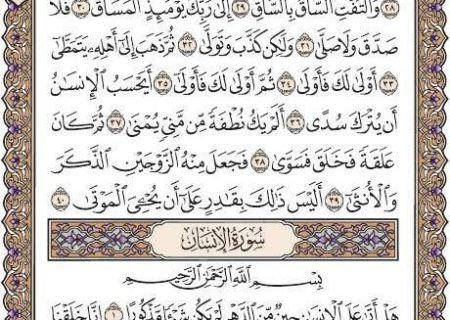 ٢٨ وَٱلْتَفَّتِ ٱلسَّاقُ بِٱلسَّاقِ ٢٩ إِلَىٰ رَبِّكَ يَوْمَئِذٍ ٱلْمَسَاقُ ٣٠ فَلَا
صَدَّقَ وَلَا صَلَّىٰ ٣١ وَلَٰكِن كَذَّبَ وَتَوَلَّىٰ ٣٢ ثُمَّ ذَهَبَ إِلَىٰٓ أَهْلِهِۦ يَتَمَطَّىٰٓ
٣٣ أَوْلَىٰ لَكَ فَأَوْلَىٰ ٣٤ ثُمَّ أَوْلَىٰ لَكَ فَأَوْلَىٰٓ ٣٥ أَيَحْسَبُ ٱلْإِنسَٰنُ
أَن يُتْرَكَ سُدًى ٣٦ أَلَمْ يَكُ نُطْفَةً مِّن مَّنِىٍّ يُمْنَىٰ ٣٧ ثُمَّ كَانَ
عَلَقَةً فَخَلَقَ فَسَوَّىٰ ٣٨ فَجَعَلَ مِنْهُ ٱلزَّوْجَيْنِ ٱلذَّكَرَ
وَٱلْأُنثَىٰٓ ٣٩ أَلَيْسَ ذَٰلِكَ بِقَٰدِرٍ عَلَىٰٓ أَن يُحْـِۧىَ ٱلْمَوْتَىٰ ٤٠
سُورَةُ الإِنسَانِ
بِسْمِ ٱللَّهِ ٱلرَّحْمَٰنِ ٱلرَّحِيمِ
هَلْ أَتَىٰ عَلَى ٱلْإِنسَٰنِ حِينٌ مِّنَ ٱلدَّهْرِ لَمْ يَكُن شَيْـًٔا مَّذْكُورًا ١ إِنَّا خَلَقْنَا